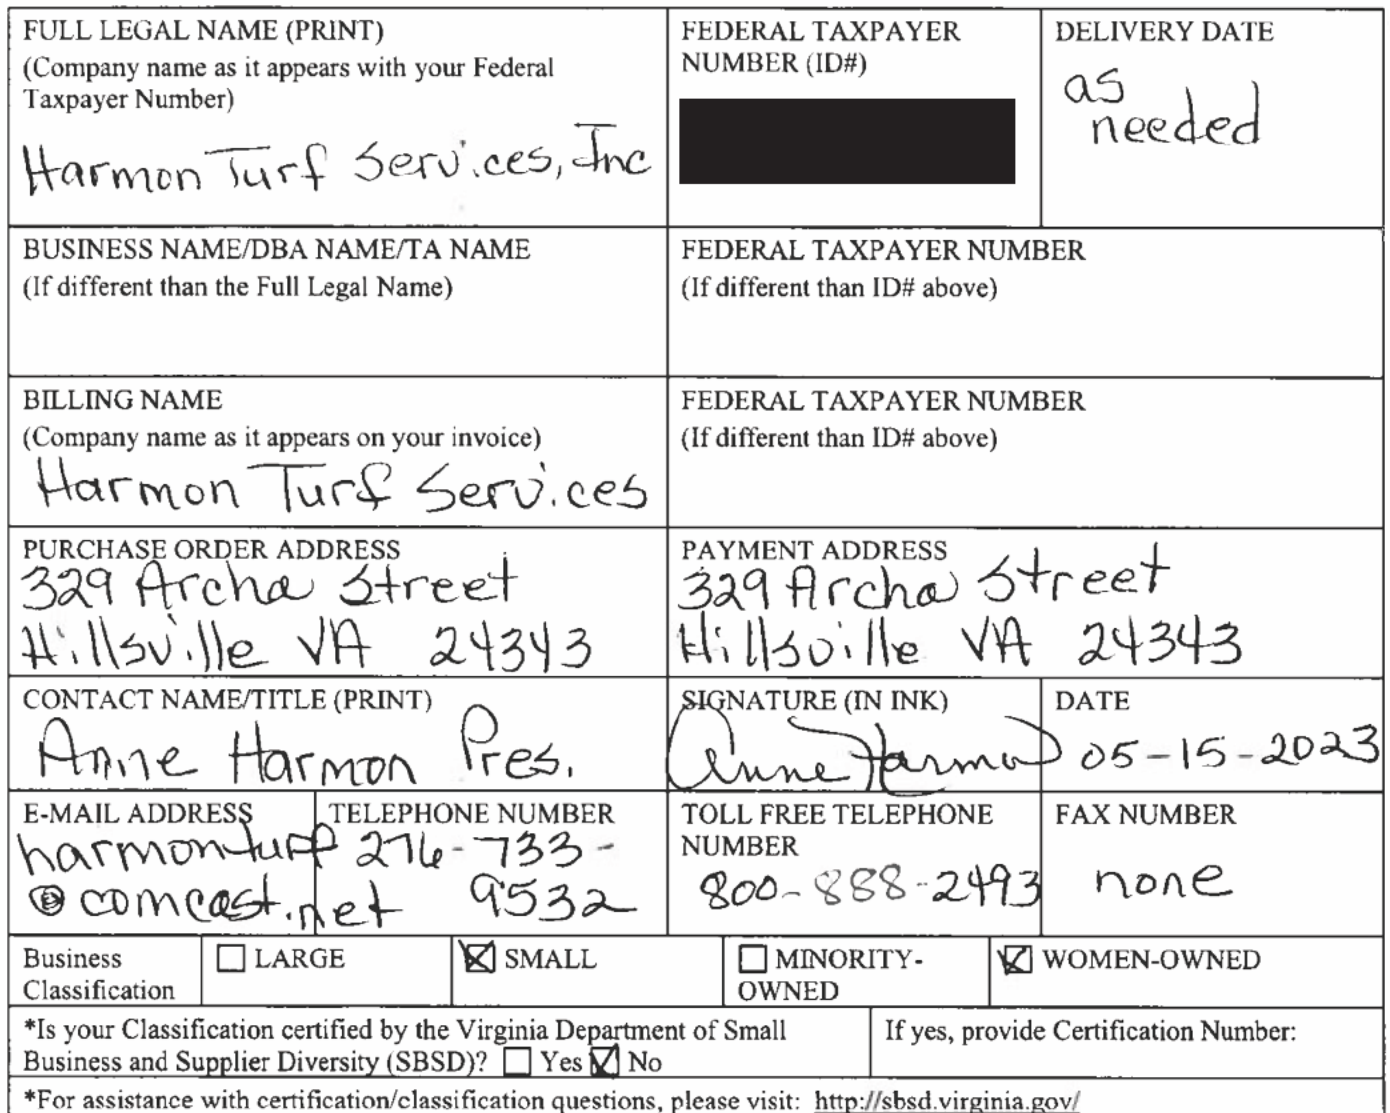 FULL LEGAL NAME (PRINT)
(Company name as it appears with your Federal
Taxpayer Number)
Harmon Turf Services, Inc
FEDERAL TAXPAYER
NUMBER (ID#)
DELIVERY DATE
as
needed
BUSINESS NAME/DBA NAME/TA NAME
(If different than the Full Legal Name)
FEDERAL TAXPAYER NUMBER
(If different than ID# above)
BILLING NAME
(Company name as it appears on your invoice)
Harmon Turf Services
FEDERAL TAXPAYER NUMBER
(If different than ID# above)
PURCHASE ORDER ADDRESS
329 Archa Street
Hillsville VA 24343
PAYMENT ADDRESS
329 Archa Street
Hillsville VA 24343
CONTACT NAME/TITLE (PRINT)
Anne Harmon Pres.
SIGNATURE (IN INK)
Anne Harmon
DATE
05-15-2023
E-MAIL ADDRESS
harmonturf
@comcast.net
TELEPHONE NUMBER
276-733-
9532
TOLL FREE TELEPHONE
NUMBER
800-888-2493
FAX NUMBER
none
Business
Classification
LARGE
SMALL
MINORITY-
OWNED
WOMEN-OWNED
*Is your Classification certified by the Virginia Department of Small
Business and Supplier Diversity (SBSD)? Yes No
If yes, provide Certification Number:
*For assistance with certification/classification questions, please visit: http://sbsd.virginia.gov/